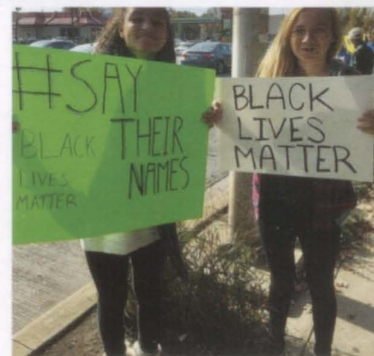 #SAY
THEIR
NAMES
BLACK
LIVES
MATTER
BLACK
LIVES
MATTER